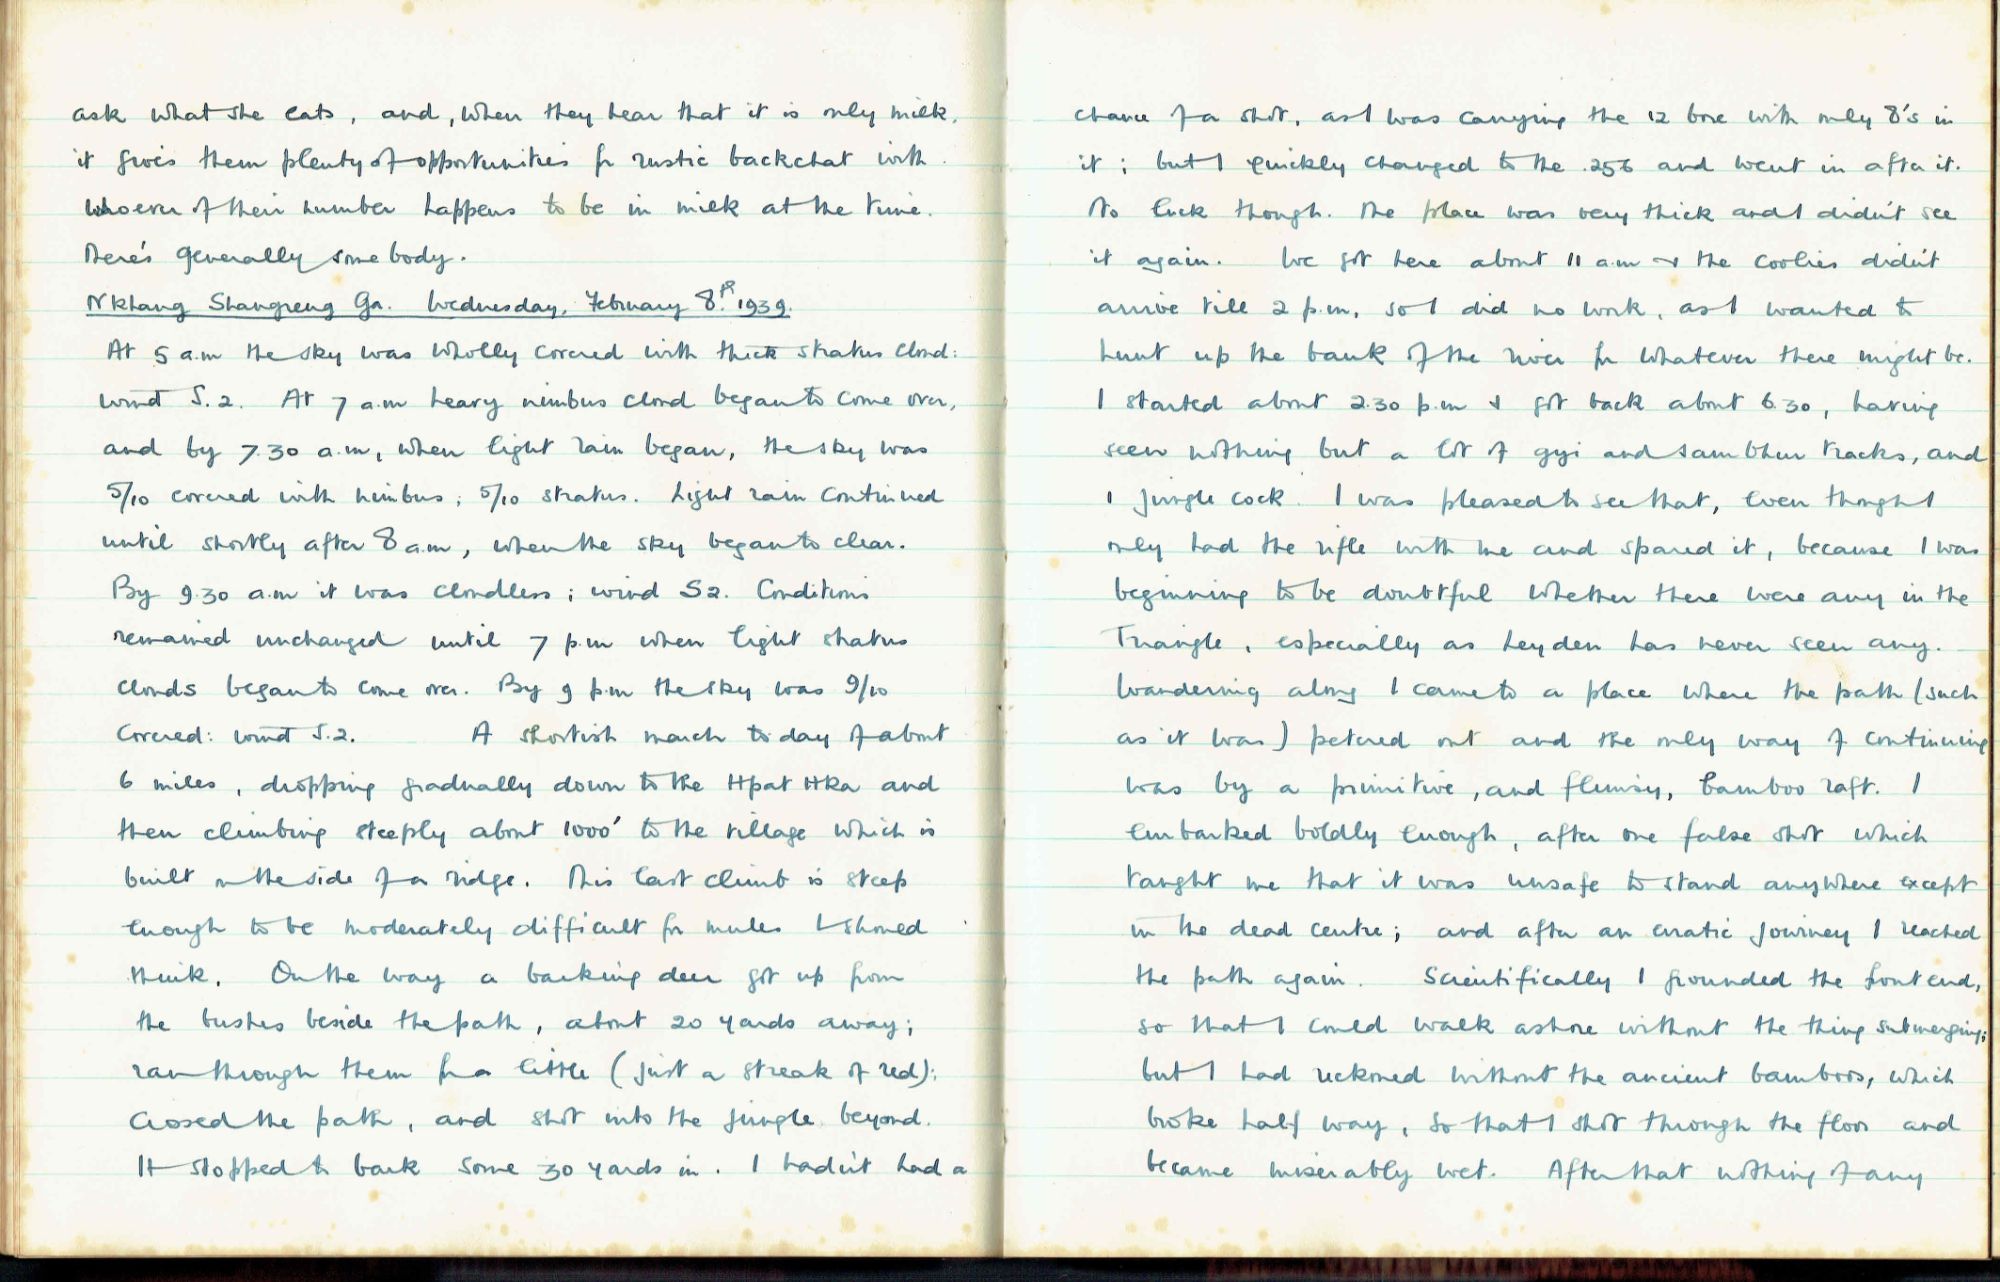 ask what she eats, and, when they hear that it is only milk,
it gives them plenty of opportunities for rustic backchat with
whoever of their number happens to be in milk at the time.
There's generally somebody.
Nkhang Shangreng Ga. Wednesday, February 8th. 1939.
At 5 a.m the sky was wholly covered with thick stratus cloud:
wind S.2. At 7 a.m heavy nimbus cloud began to come over,
and by 7.30 a.m, when light rain began, the sky was
5/10 covered with nimbus, 5/10 stratus. Light rain continued
until shortly after 8 a.m, when the sky began to clear.
By 9.30 a.m it was cloudless; wind S2. Conditions
remained unchanged until 7 p.m when light stratus
clouds began to come over. By 9 p.m the sky was 9/10
covered: wind S.2. A shortish march today of about
6 miles, dropping gradually down to the Hpat Hka and
then climbing steeply about 1000' to the village which is
built on the side of a ridge. This last climb is steep
enough to be moderately difficult for mules I should
think. On the way a barking deer got up from
the bushes beside the path, about 20 yards away;
ran through them for a little (just a streak of red);
crossed the path, and shot into the jungle beyond.
It stopped to bark some 30 yards in. I hadn't had a
chance of a shot, as I was carrying the 12 bore with only 8's in
it; but I quickly changed to the .256 and went in after it.
No luck though. The place was very thick and I didn't see
it again. We got here about 11 a.m & the coolies didn't
arrive till 2 p.m, so I did no work, as I wanted to
hunt up the bank of the river for whatever there might be.
I started about 2.30 p.m & got back about 6.30, having
seen nothing but a lot of gyi and sambhur tracks, and
1 jungle cock. I was pleased to see that, even though I
only had the rifle with me and spared it, because I was
beginning to be doubtful whether there were any in the
Triangle, especially as Leyden has never seen any.
Wandering along I came to a place where the path (such
as it was) petered out and the only way of continuing
was by a primitive, and flimsy, bamboo raft. I
embarked boldly enough, after one false shot which
taught me that it was unsafe to stand anywhere except
in the dead centre; and after an erratic journey I reached
the path again. Scientifically I grounded the front end,
so that I could walk ashore without the thing submerging;
but I had reckoned without the ancient bamboos, which
broke half way, so that I shot through the floor and
became miserably wet. After that nothing of any